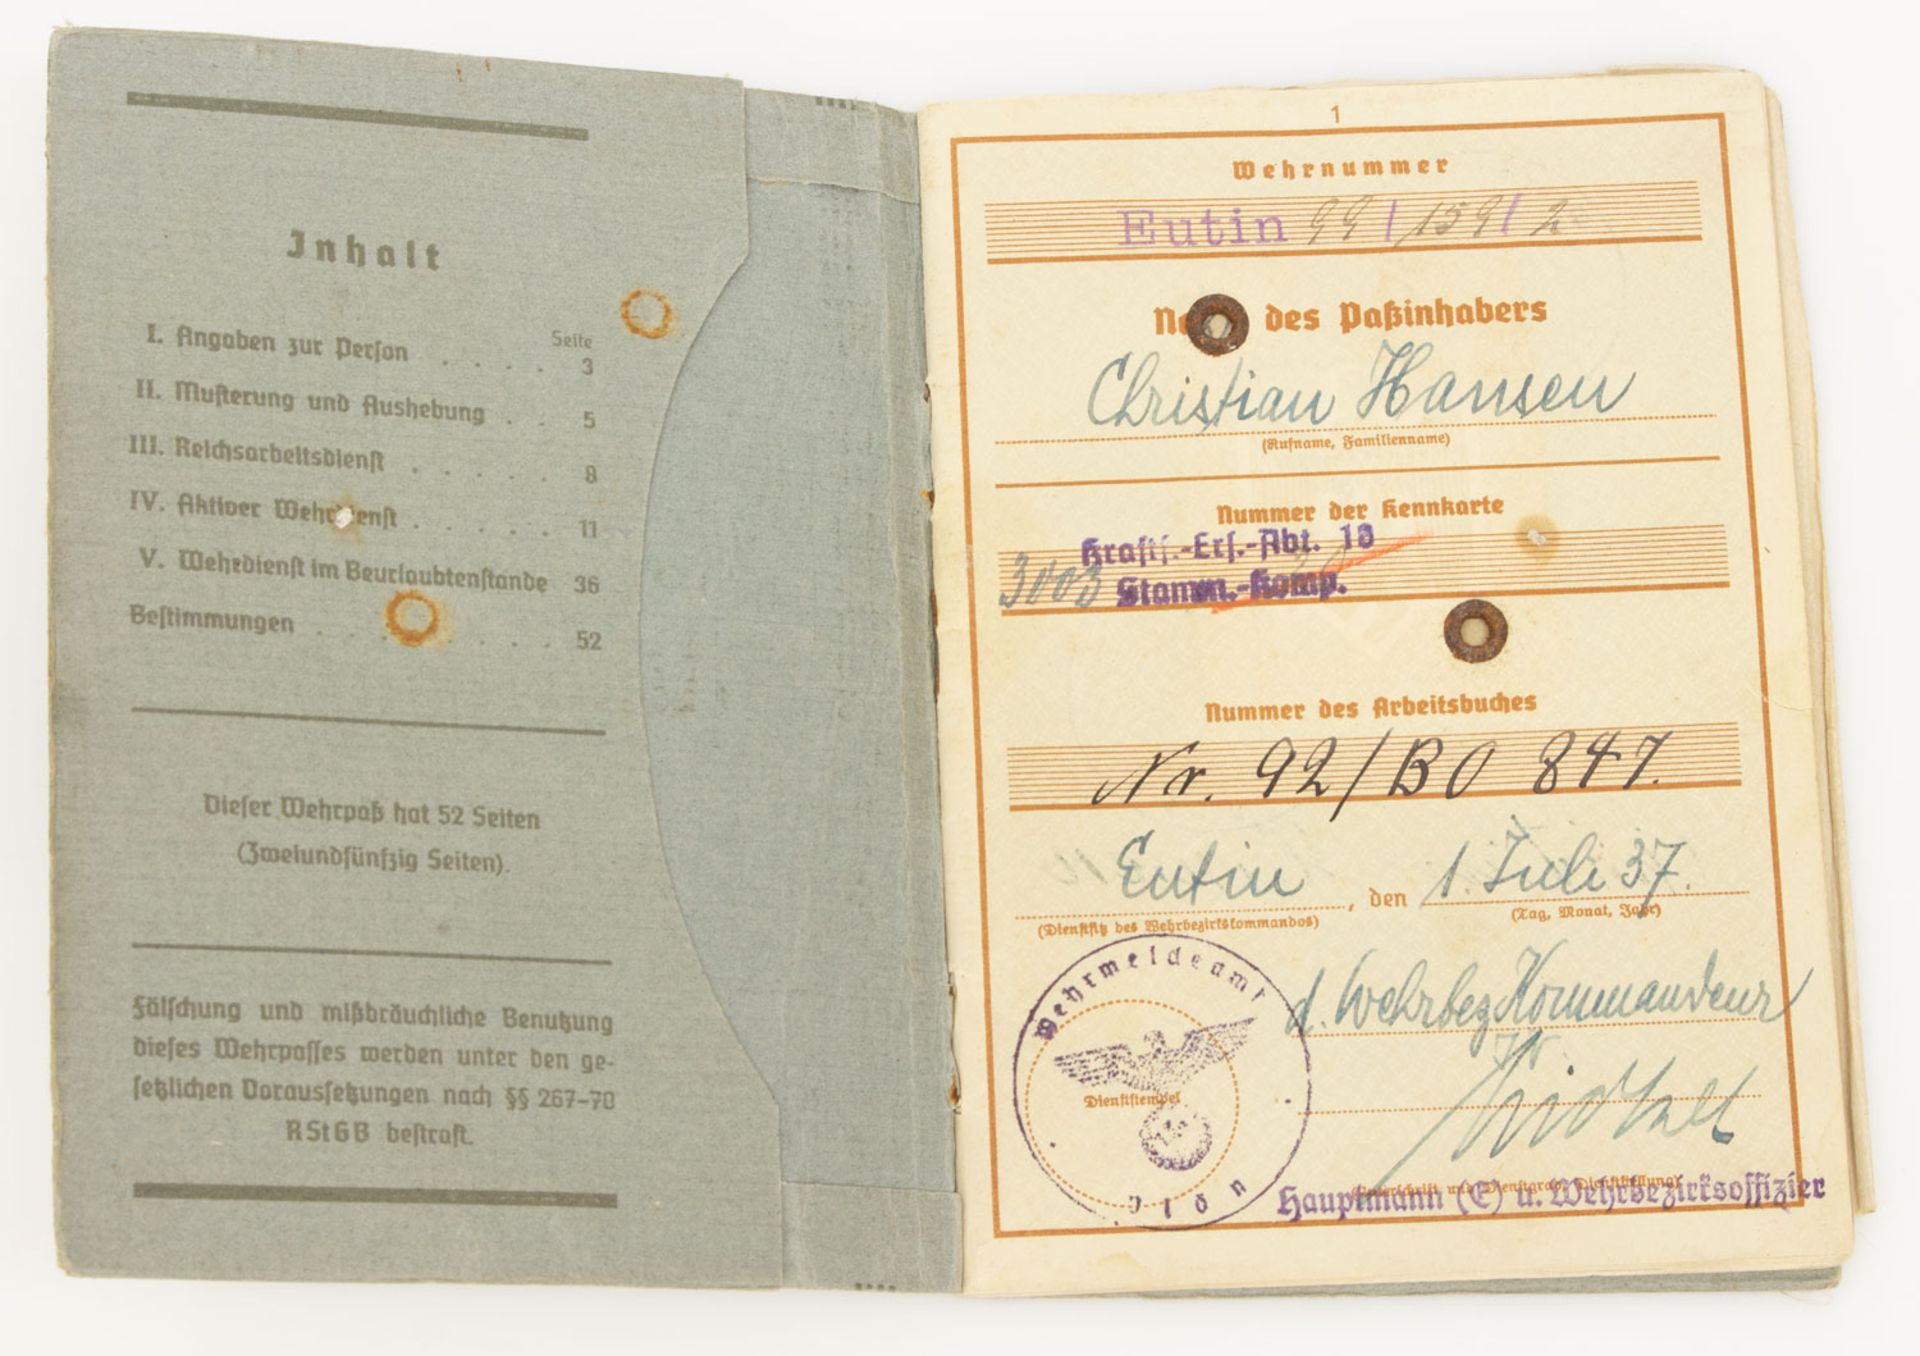 Inhalt
Seite
I. Angaben zur Person . . . . . 3
II. Musterung und Aushebung . . 5
III. Reichsarbeitsdienst . . . . . 8
IV. Aktiver Wehrdienst . . . . . 11
V. Wehrdienst im Beurlaubtenstande 36
Bestimmungen . . . . . . . 52
Dieser Wehrpaß hat 52 Seiten
(Zweiundfünfzig Seiten).
Fälschung und mißbräuchliche Benutzung
dieses Wehrpasses werden unter den ge-
setzlichen Voraussetzungen nach §§ 267-70
RStGB bestraft.
1
Wehrnummer
Eutin 99/159/2
des Paßinhabers
Christian Hansen
(Rufname, Familienname)
Nummer der Kennkarte
Kraftf.-Ers.-Abt. 10
3003 Stamm.-Komp.
Nummer des Arbeitsbuches
Nr. 92/BO 847.
Eutin, den 1. Juli 37.
(Dienstsitz des Wehrbezirkskommandos) (Tag, Monat, Jahr)
Wehrmeldeamt
d. Wehrbez Kommandeur
Dienststempel
Plön
(Unterschrift und Dienstgrad, Dienststellung)
Hauptmann (E) u. Wehrbezirksoffizier